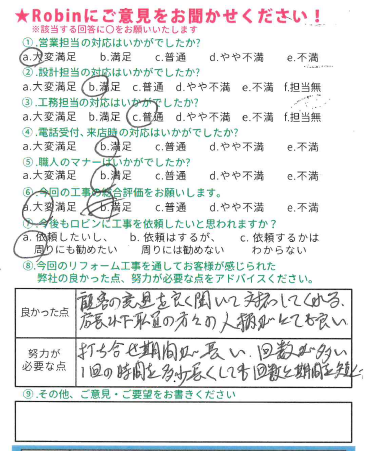 ★Robinにご意見をお聞かせください！
※該当する回答に〇をお願いいたします
①.営業担当の対応はいかがでしたか?
a.大変満足 b.満足 c.普通 d.やや不満 e.不満
②.設計担当の対応はいかがでしたか?
a.大変満足 b.満足 c.普通 d.やや不満 e.不満 f.担当無
③.工務担当の対応はいかがでしたか?
a.大変満足 b.満足 c.普通 d.やや不満 e.不満 f.担当無
④.電話受付、来店時の対応はいかがでしたか?
a.大変満足 b.満足 c.普通 d.やや不満 e.不満
⑤.職人のマナーはいかがでしたか?
a.大変満足 b.満足 c.普通 d.やや不満 e.不満
⑥.今回の工事の総合評価をお願いします。
a.大変満足 b.満足 c.普通 d.やや不満 e.不満
⑦.今後もロビンに工事を依頼したいと思われますか？
a.依頼したいし、 b.依頼はするが、 c.依頼するかは
周りにも勧めたい 周りには勧めない わからない
⑧.今回のリフォーム工事を通してお客様が感じられた
弊社の良かった点、努力が必要な点をアドバイスください。
良かった点
顧客の意見を良く聞いて対応してくれる、
店長以下職員の方々の人柄がとても良い
努力が
必要な点
打ち合せ期間が長い、回数が多い
1回の時間を多少長くしても回数と期間を短く
⑨.その他、ご意見・ご要望をお書きください